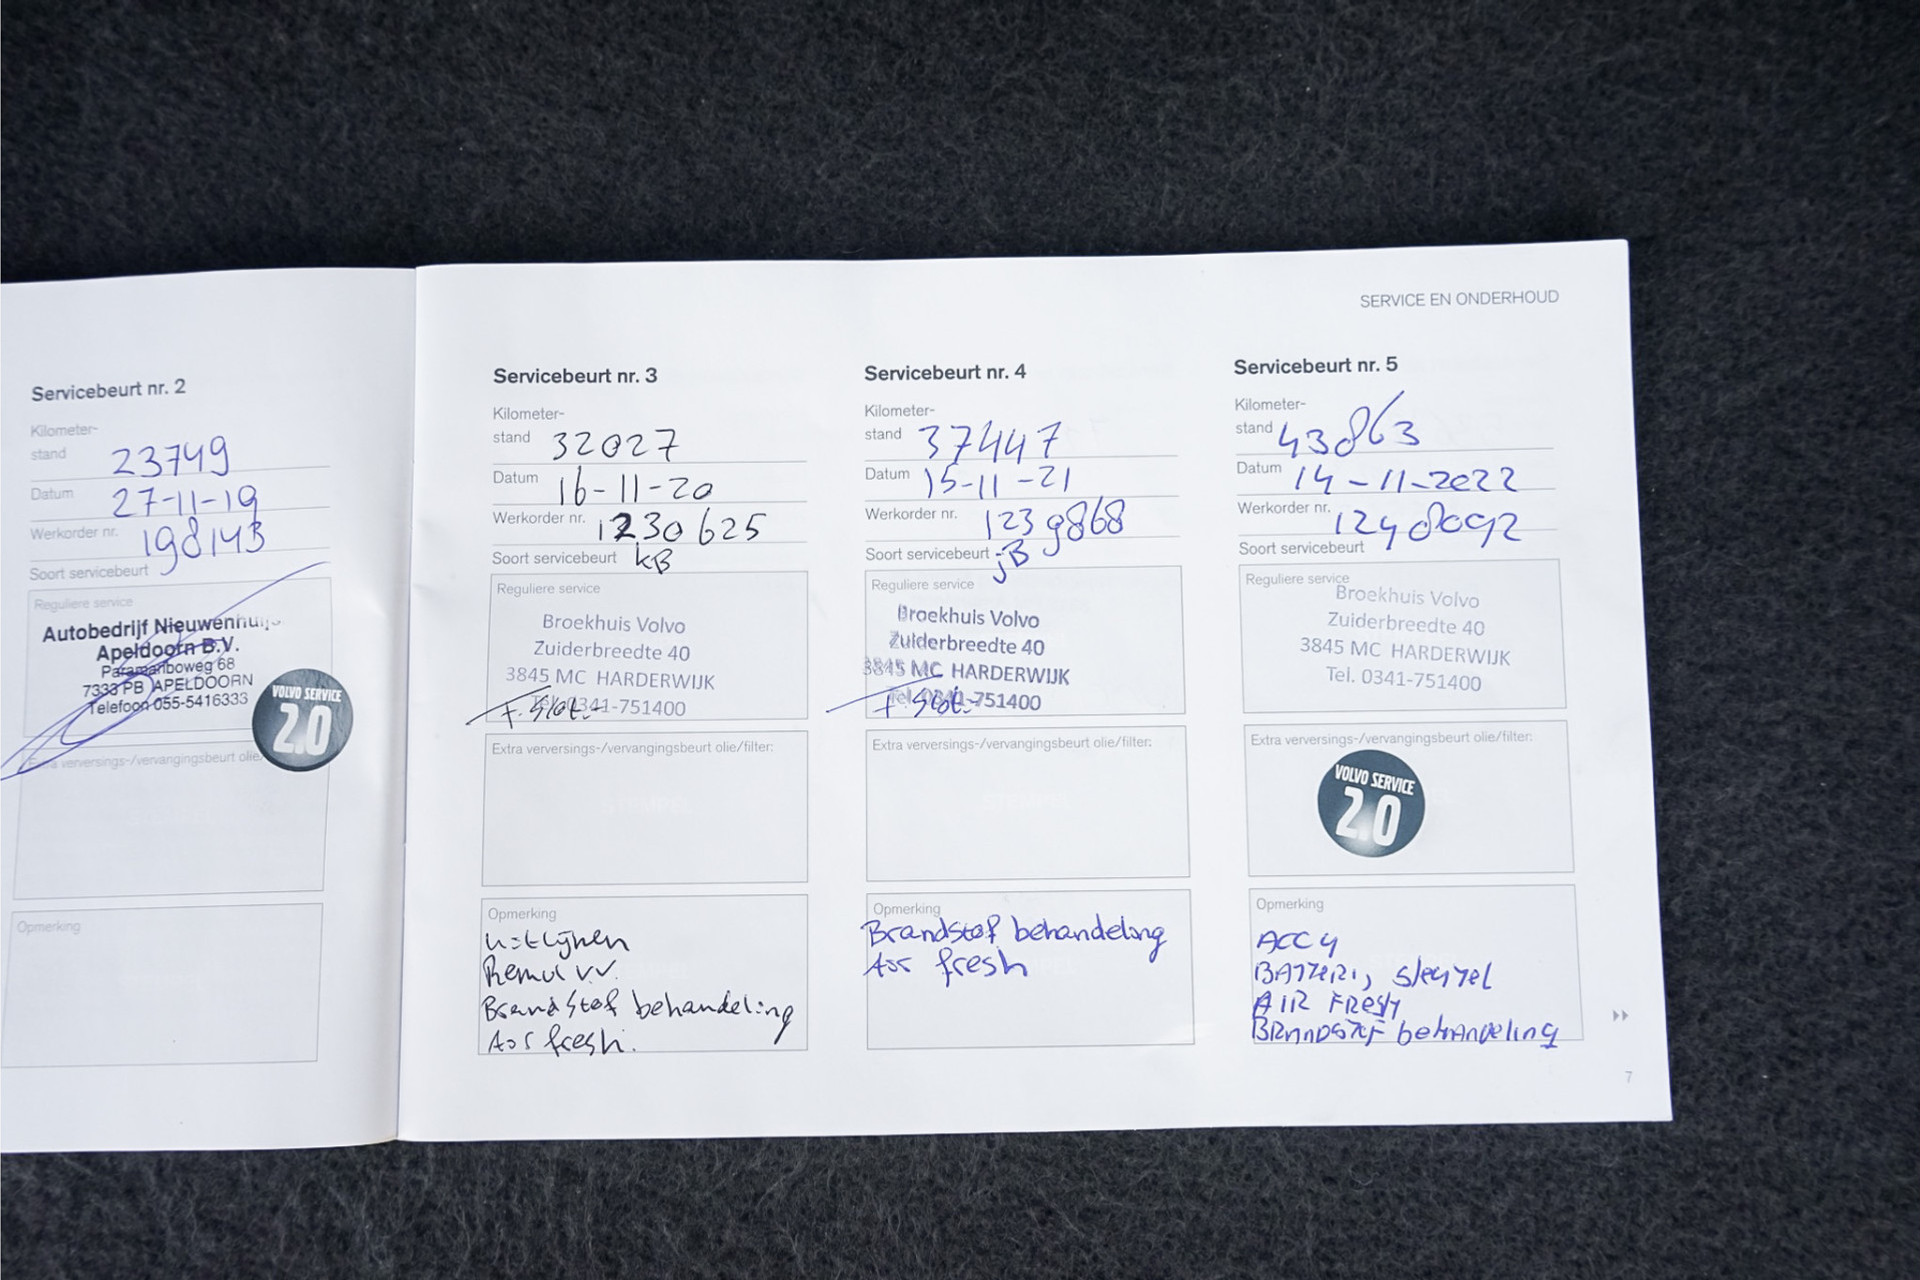 SERVICE EN ONDERHOUD
Servicebeurt nr. 2
Kilometer-
stand 23749
Datum 27-11-19
Werkorder nr. 198143
Soort servicebeurt
Reguliere service
Autobedrijf Nieuwenhuijs
Apeldoorn B.V.
Paramariboweg 68
7333 PB APELDOORN
Telefoon 055-5416333
VOLVO SERVICE
2.0
Extra verversings-/vervangingsbeurt olie/
Opmerking
Servicebeurt nr. 3
Kilometer-
stand 32027
Datum 16-11-20
Werkorder nr. 1230625
Soort servicebeurt kB
Reguliere service
Broekhuis Volvo
Zuiderbreedte 40
3845 MC HARDERWIJK
Tel. 0341-751400
F. Slot.-
Extra verversings-/vervangingsbeurt olie/filter:
Opmerking
Uitlijnen
Remvl vv.
Brandstof behandeling
Air fresh.
Servicebeurt nr. 4
Kilometer-
stand 37447
Datum 15-11-21
Werkorder nr. 1239868
Soort servicebeurt jB
Reguliere service
Broekhuis Volvo
Zuiderbreedte 40
3845 MC HARDERWIJK
Tel. 0341-751400
F Slot.-
Extra verversings-/vervangingsbeurt olie/filter:
Opmerking
Brandstof behandeling
Air fresh
Servicebeurt nr. 5
Kilometer-
stand 43863
Datum 14-11-2022
Werkorder nr. 1248092
Soort servicebeurt
Reguliere service
Broekhuis Volvo
Zuiderbreedte 40
3845 MC HARDERWIJK
Tel. 0341-751400
Extra verversings-/vervangingsbeurt olie/filter:
VOLVO SERVICE
2.0
Opmerking
ACCU
BATTERIJ, sleutel
AIR FRESH
BRANDSTOF behandeling
7